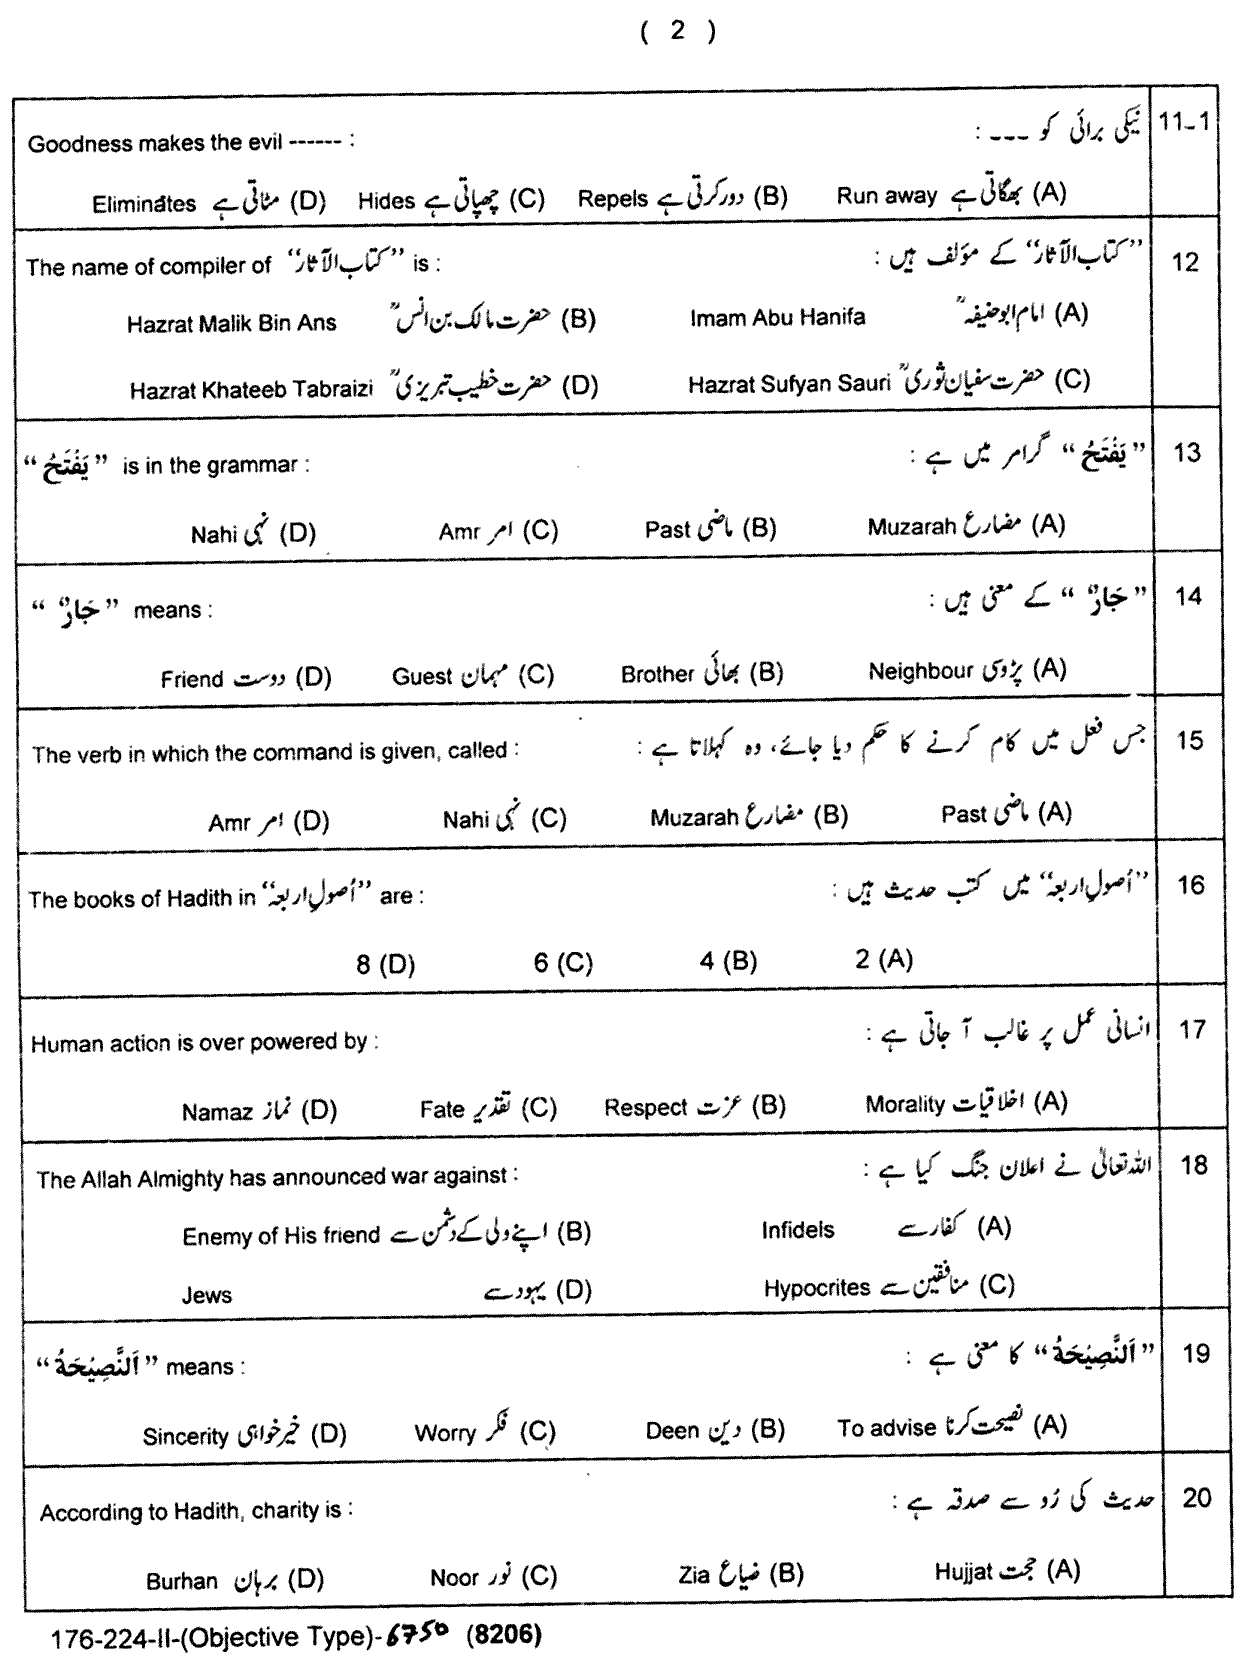 ( 2 )
Goodness makes the evil ------ : نیکی برائی کو ـــ : 11-1
Eliminates مٹاتی ہے (D) Hides چھپاتی ہے (C) Repels دور کرتی ہے (B) Run away بھگاتی ہے (A)
The name of compiler of ’’کتاب الآثار‘‘ is : ’’کتاب الآثار‘‘ کے مؤلف ہیں : 12
Hazrat Malik Bin Ans حضرت مالک بن انسؒ (B) Imam Abu Hanifa امام ابوحنیفہؒ (A)
Hazrat Khateeb Tabraizi حضرت خطیب تبریزیؒ (D) Hazrat Sufyan Sauri حضرت سفیان ثوریؒ (C)
“ يَفْتَحُ ” is in the grammar : “ يَفْتَحُ ” گرامر میں ہے : 13
Nahi نہی (D) Amr امر (C) Past ماضی (B) Muzarah مضارع (A)
“ جَارٌ ” means : “ جَارٌ ” کے معنی ہیں : 14
Friend دوست (D) Guest مہمان (C) Brother بھائی (B) Neighbour پڑوسی (A)
The verb in which the command is given, called : جس فعل میں کام کرنے کا حکم دیا جائے، وہ کہلاتا ہے : 15
Amr امر (D) Nahi نہی (C) Muzarah مضارع (B) Past ماضی (A)
The books of Hadith in ’’اُصولِ اربعہ‘‘ are : ’’اُصولِ اربعہ‘‘ میں کتب حدیث ہیں : 16
8 (D) 6 (C) 4 (B) 2 (A)
Human action is over powered by : انسانی عمل پر غالب آ جاتی ہے : 17
Namaz نماز (D) Fate تقدیر (C) Respect عزت (B) Morality اخلاقیات (A)
The Allah Almighty has announced war against : اللہ تعالیٰ نے اعلان جنگ کیا ہے : 18
Enemy of His friend اپنے ولی کے دشمن سے (B) Infidels کفار سے (A)
Jews یہود سے (D) Hypocrites منافقین سے (C)
“ اَلنَّصِيْحَةُ ” means : “ اَلنَّصِيْحَةُ ” کا معنی ہے : 19
Sincerity خیرخواہی (D) Worry فکر (C) Deen دین (B) To advise نصیحت کرنا (A)
According to Hadith, charity is : حدیث کی رُو سے صدقہ ہے : 20
Burhan برہان (D) Noor نور (C) Zia ضیاع (B) Hujjat حجت (A)
176-224-II-(Objective Type)-6750 (8206)